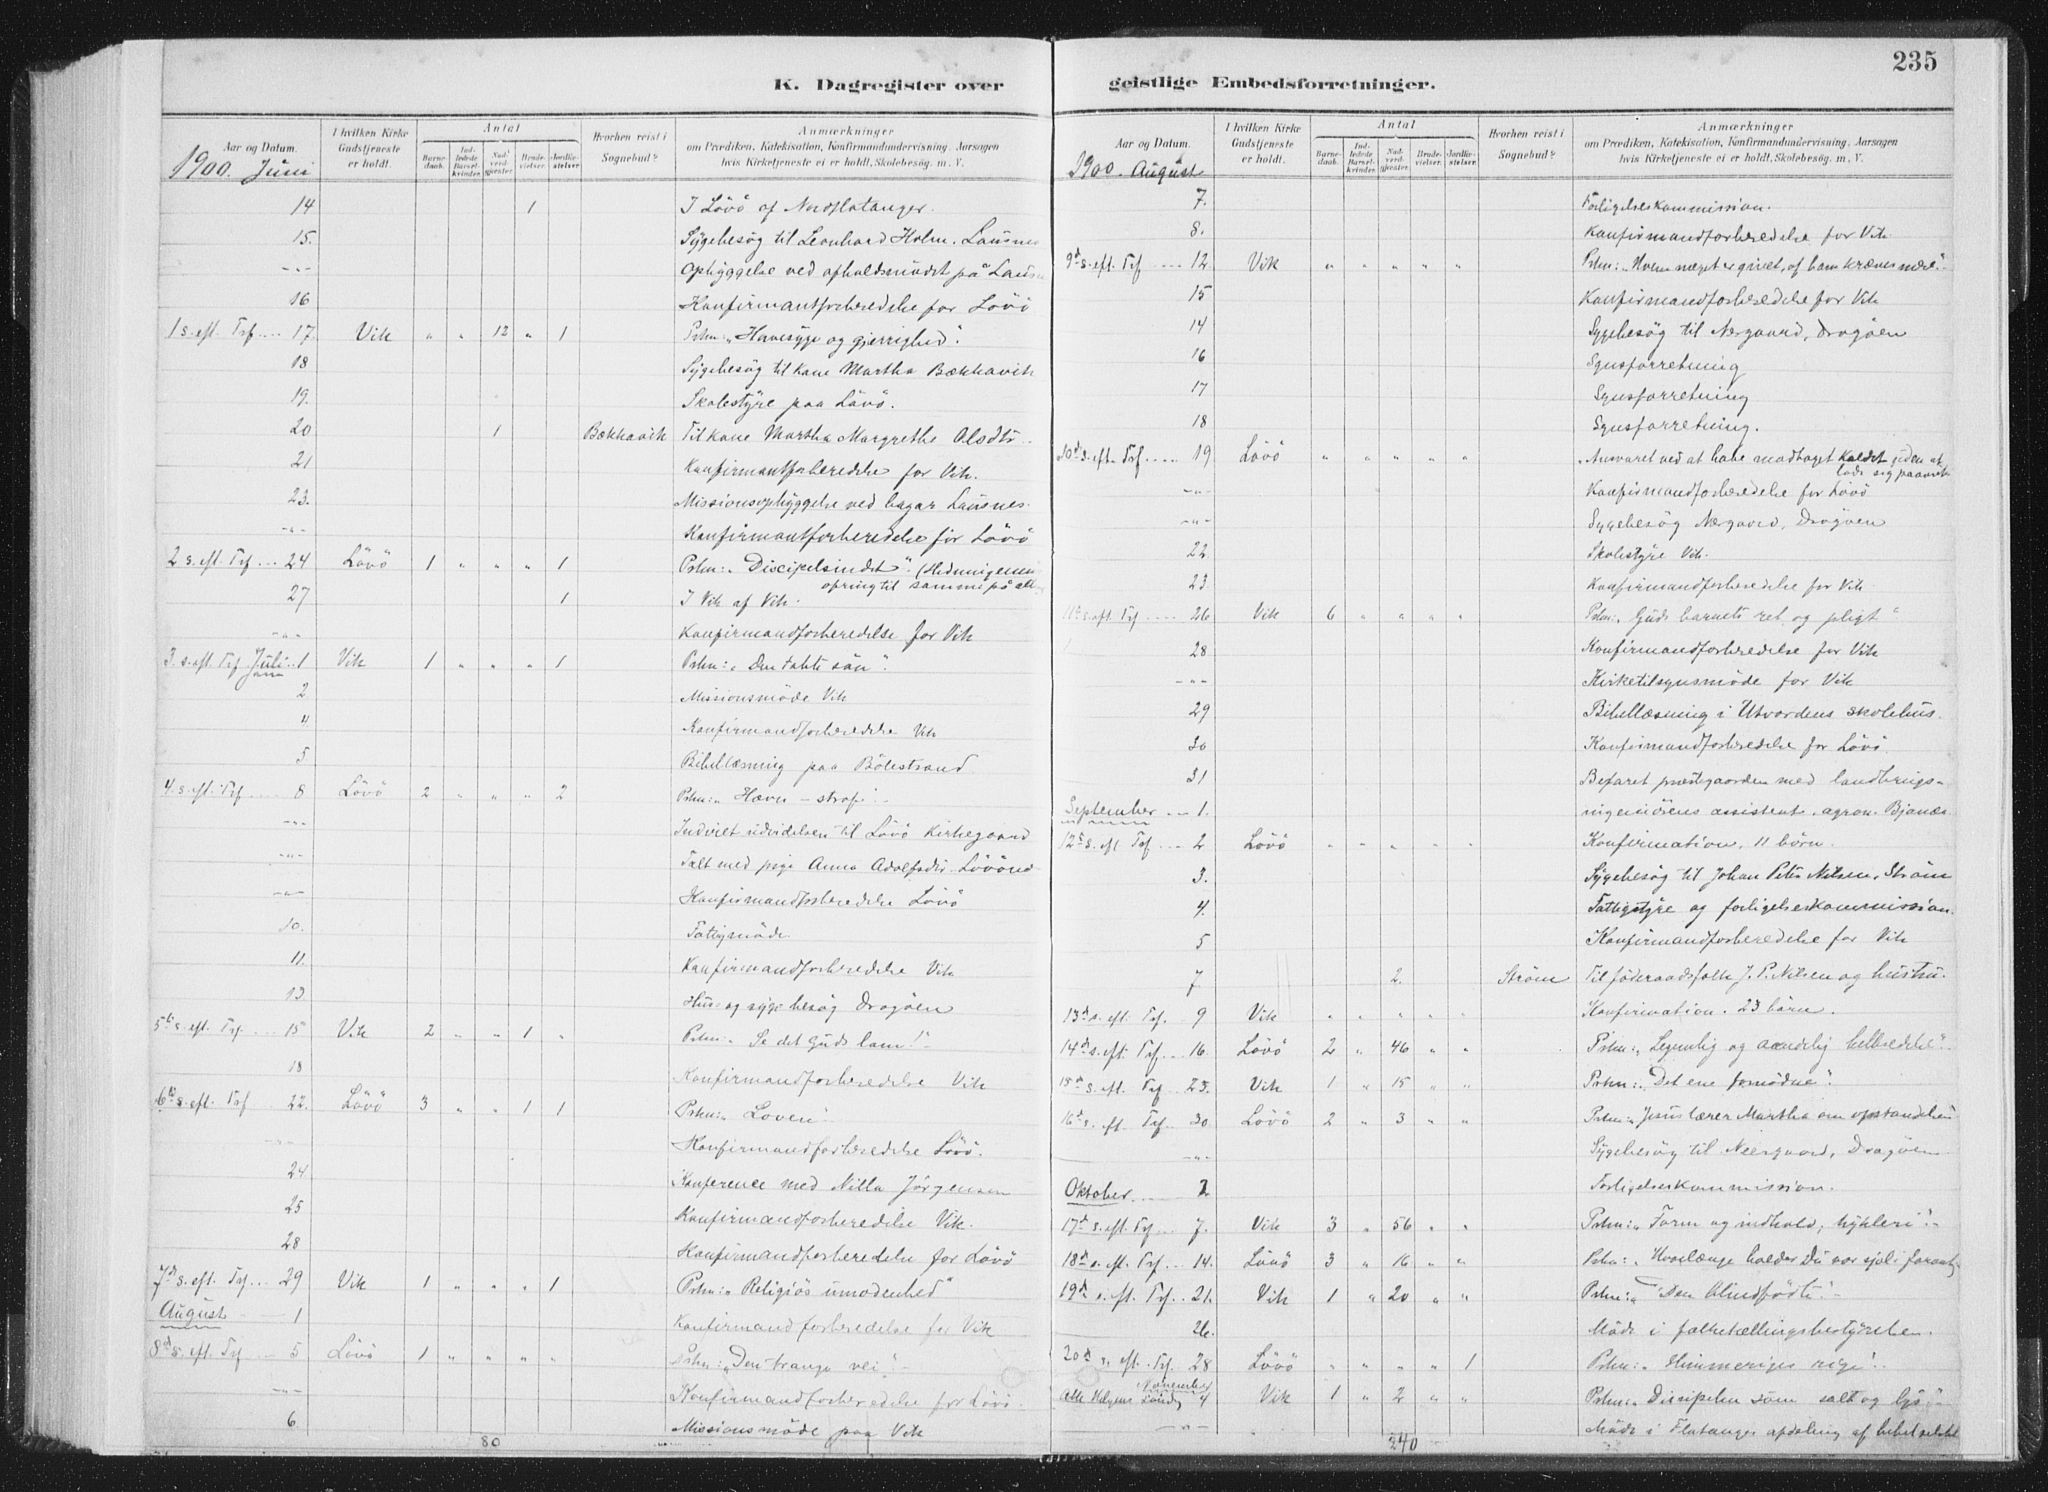 235
K. Dagregister over
geistlige Embedsforretninger.
Aar og Datum.
I hvilken Kirke Gudstjeneste er holdt.
Antal
Barnedaab.
Indledede Barselkvinder.
Nadverdgjester.
Brudevielser.
Jordfæstelser.
Hvorhen reist i Sognebud?
Anmærkninger
om Prædiken, Katekisation, Konfirmandundervisning, Aarsagen
hvis Kirketjeneste ei er holdt, Skolebesøg. m. V.
1900. Juni
14 1 I Lövö af Nordflatanger.
15. Sygebesøg til Leonhard Holm. Lausnes
-"- Ophyggelse ved afholdsmödet på Lausn
16 Konfirmantforberedelse for Lövö
1 s. eft. Trf .... 17. Vik " " 12 " 1 Prkn: "Havesyge og gjerrighed".
18 Sygebesøg til kone Martha Bækkavik
19. Skolestyre paa Lövö.
20 1 Bækkavik Til kone Martha Margrethe Olsdtr.
21 Konfirmantforberedelse for Vik.
23. Missionsophyggelse ved Lausnes.
-"- Konfirmantforberedelse for Lövö
2 s. eft. Trf ... 24 Lövö 1 " " " 1 Prkn: "Discipelsindet". (Hedningernes
opring til samme på alt
27 1 I Vik af Vik.
-"- Konfirmandforberedelse for Vik
3. s. eft. Trf. Juli .. 1 Vik 1 " " " 1 Prkn: "Den tabte sön".
2 Missionsmöde Vik
4 Konfirmandforberedelse Vik
5 Bibellæsning paa Bölestrand
4. s. eft. Trf .... 8 Lövö 2 " " " 2 Prkn: "Hævn - straf".
-"- Indviet udvidelsen til Lövö Kirkegaard
-"- Talt med pige Anna Adolfsdtr Lövöen
-"- Konfirmandforberedelse Lövö
10. Fatigmöde
11. Konfirmandforberedelse Vik
13 Hus- og sygebesøg Dragöen
5te s. eft. Trf. ... 15 Vik 2 " " 1 " Prkn: "Se det Guds lam!"
18 Konfirmandforberedelse Vik
6te s. eft. Trf ... 22. Lövö 3 " " 1 1 Prkn: "Loven"
-"- Konfirmandforberedelse Lövö.
24 Konference med Nilla Jörgensen
25 Konfirmandforberedelse Vik.
28 Konfirmandforberedelse for Lövö
7de s. eft. Trf ... 29 Vik 1 " " " 1 Prkn: "Religiös umodenhed"
August 1 Konfirmandforberedelse for Vik
8de s. eft. Trf ... 5 Lövö 1 " " " " Prkn: "Den trange vei".
-"- Konfirmandforberedelse for Lövö.
6. Missionsmöde paa Vik
80
Aar og Datum.
I hvilken Kirke Gudstjeneste er holdt.
Antal
Barnedaab.
Indledede Barselkvinder.
Nadverdgjester.
Brudevielser.
Jordfæstelser.
Hvorhen reist i Sognebud?
Anmærkninger
om Prædiken, Katekisation, Konfirmandundervisning, Aarsagen
hvis Kirketjeneste ei er holdt, Skolebesøg. m. V.
1900. August
7. Forligelseskommission.
8. Konfirmandforberedelse for Vik
9de s. eft. Trf .... 12 Vik " " " " " Prkn: "Hvem meget er givet, af ham kræves mere".
15 Konfirmandforberedelse for Vik
14 Sygebesøg til Nergaard, Dragöen
16 Synsforretning
17 Synsforretning
18 Synsforretning.
10de s. eft. Trf ..... 19 Lövö " " " " " "Ansvaret ved at have modtaget kaldet uden at
lade sig paavirke
-"- Konfirmandforberedelse for Lövö
-"- Sygebesøg Nergaard, Dragöen
22 Skolestyre Vik.
23 Konfirmandforberedelse for Vik
11te s. eft. Trf ..... 26 Vik 6 " " " " Prkn: "Guds barnets ret og pligt"
28 Konfirmandforberedelse for Vik
-"- Kirketilsynsmöde for Vik
29 Bibellæsning i Utvordens skolehus.
30 Konfirmandforberedelse for Lövö
31 Befaret prestegaarden med landbrugs-
September ... 1. ingeniörens assistent, agron. Bjanæs
12te s. eft. Trf ... 2 Lövö " " " " " Konfirmation. 11 börn.
3. Sygebesøg til Johan Peter Nilsen, Ström
4. Fattigstyre og forligelseskommission.
5 Konfirmandforberedelse for Vik
7 2. Ström Til föderaadsfolk J. P. Nilsen og hustru.
13de s. eft. Trf. 9 Vik " " " " " Konfirmation. 23 börn.
14de s. eft. Trf .. 16. Lövö 2 " 46 " " Prkn: "Legemlig og aandelig helbredelse".
15de s. eft. Trf .. 23. Vik 1 " 15 " " Prkn: "Det ene fornödne".
16de s. eft. Trf. 30 Lövö 2 " 3 " " Prkn: "Jesus lærer Martha om opstandelsen
-"- Sygebesøg til Neergaard, Dragöen
Oktober ... 2. Forligelseskommission.
17de s. eft. Trf ... 7. Vik 3 " 56 " " Prkn: "Form og indhold, hykleri".
18de s. eft. Trf ... 14. Lövö 3 " 16 " " Prkn: "Hvorlænge holder Du vor sjel i
19de s. eft. Trf .. 21. Vik 1 " 20 " " Prkn: "Den blindfödte".
26. Möde i folketællingsbestyrelsen.
20de s. eft. Trf .. 28 Lövö " " " " 1 Prkn: "Himmeriges rige".
Alle Helgens Söndag November 4 Vik 1 " 2 " " Prkn: "Disciplen som salt og lys."
-"- Möde i Flatangers afdeling af bibelselskab
240